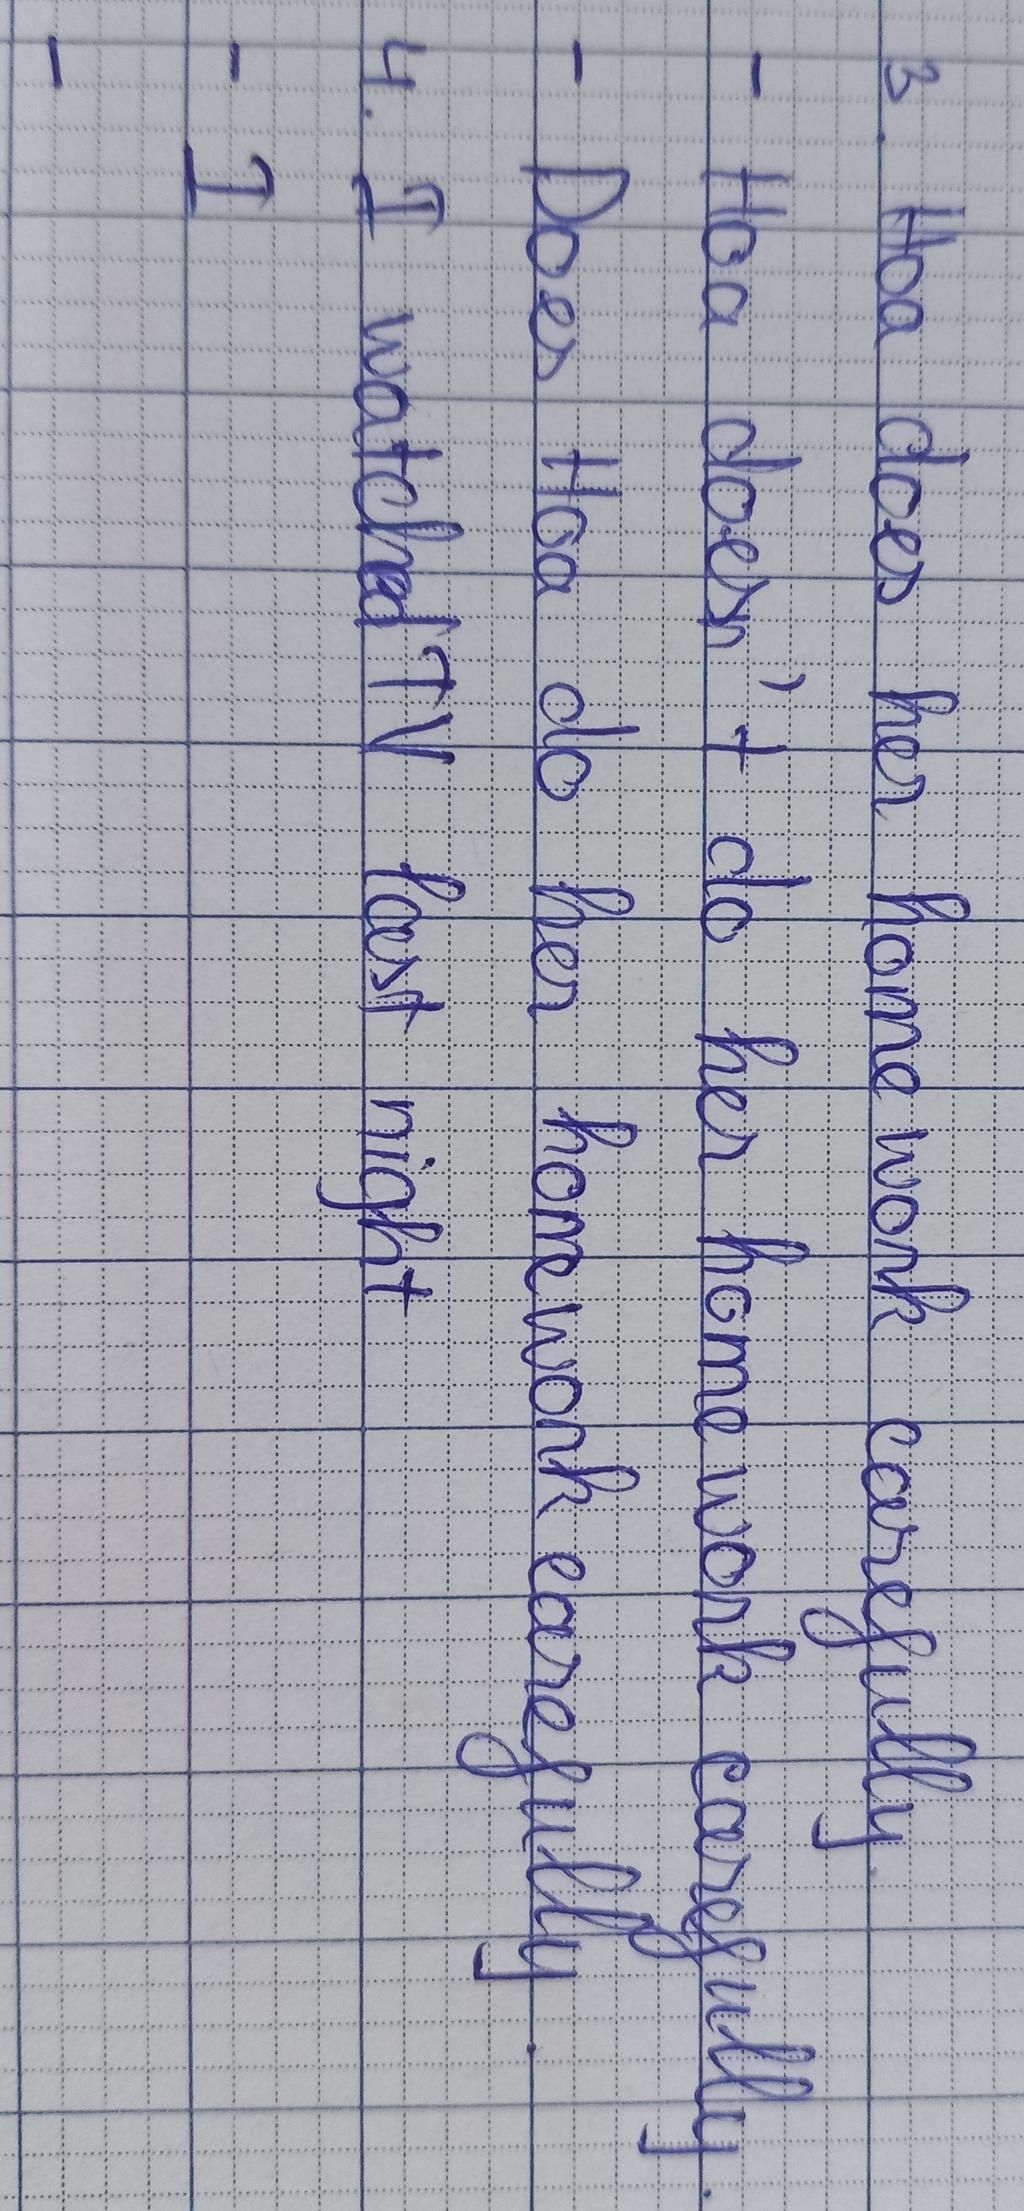 3. Hoa does her homework carefully.
- Hoa doesn't do her homework carefully.
- Does Hoa do her homework carefully.
4. I watched TV last night
- I
-